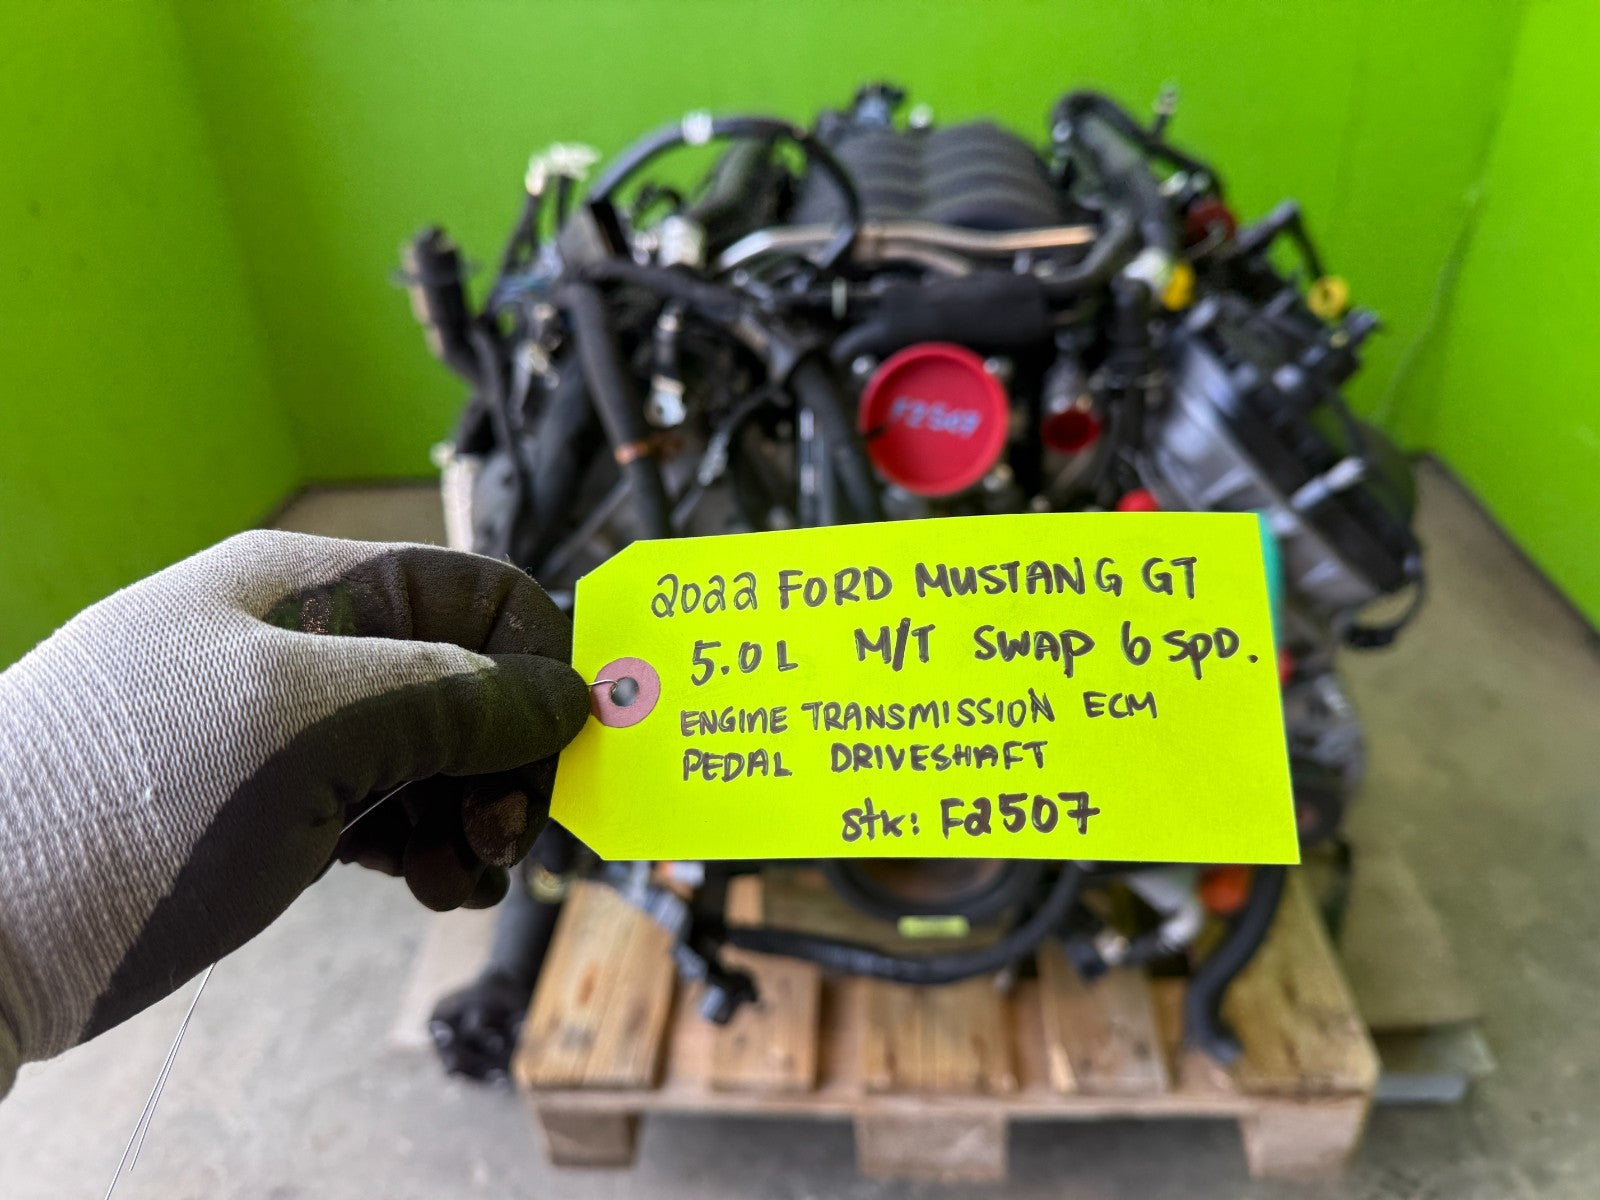 F2507
2022 FORD MUSTANG GT
5.0L M/T SWAP 6 SPD.
ENGINE TRANSMISSION ECM
PEDAL DRIVESHAFT
Stk: F2507